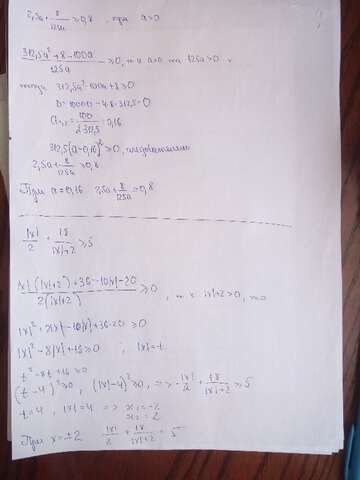 2,5a + 8/125a ≥ 0,8, при a>0
312,5a² + 8 - 100a / 125a ≥ 0, т.к a>0 то 125a>0,
тогда 312,5a² - 100a + 8 ≥ 0
D = 10000 - 4·8·312,5 = 0
a₁,₂ = 100 / 2·312,5 = 0,16
312,5(a-0,16)² ≥ 0, следовательно
2,5a + 8/125a ≥ 0,8
При a=0,16 2,5a + 8/125a = 0,8
|x|/2 + 18/|x|+2 ≥ 5
|x|(|x|+2) + 36 - 10|x| - 20 / 2(|x|+2) ≥ 0, т.к |x|+2>0, то
|x|² + 2|x| - 10|x| + 36 - 20 ≥ 0
|x|² - 8|x| + 16 ≥ 0 ; |x|=t
t² - 8t + 16 ≥ 0
(t-4)² ≥ 0, (|x|-4)² ≥ 0, => |x|/2 + 18/|x|+2 ≥ 5
t=4, |x|=4 => x₁=-2
x₂=2
При x=±2 |x|/2 + 18/|x|+2 = 5